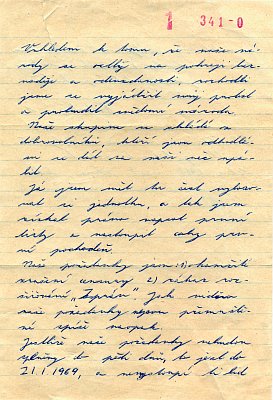 1 341-0
Vzhledem k tomu, že naše ná-
rody se ocitly na pokraji bez-
naděje a odevzdanosti, rozhodli
jsme se vyjádřit svůj protest
a probudit svědomí národa.
Naše skupina se skládá z
dobrovolníků, kteří jsou odhodlá-
ni se dát za naši věc upá-
lit.
Já jsem měl tu čest vyloso-
vat si jedničku, a tak jsem
získal právo napsat první
listy a nastoupit coby prv-
ní pochodeň.
Naše požadavky jsou: 1) okamžité
zrušení cenzury 2) zákaz roz-
šiřování „Zpráv". Jak vidíte
naše požadavky nejsou přemrště-
né spíš naopak.
Jestliže naše požadavky nebudou
splněny do pěti dnů, to jest do
21.1.1969, a nevystoupí-li lid